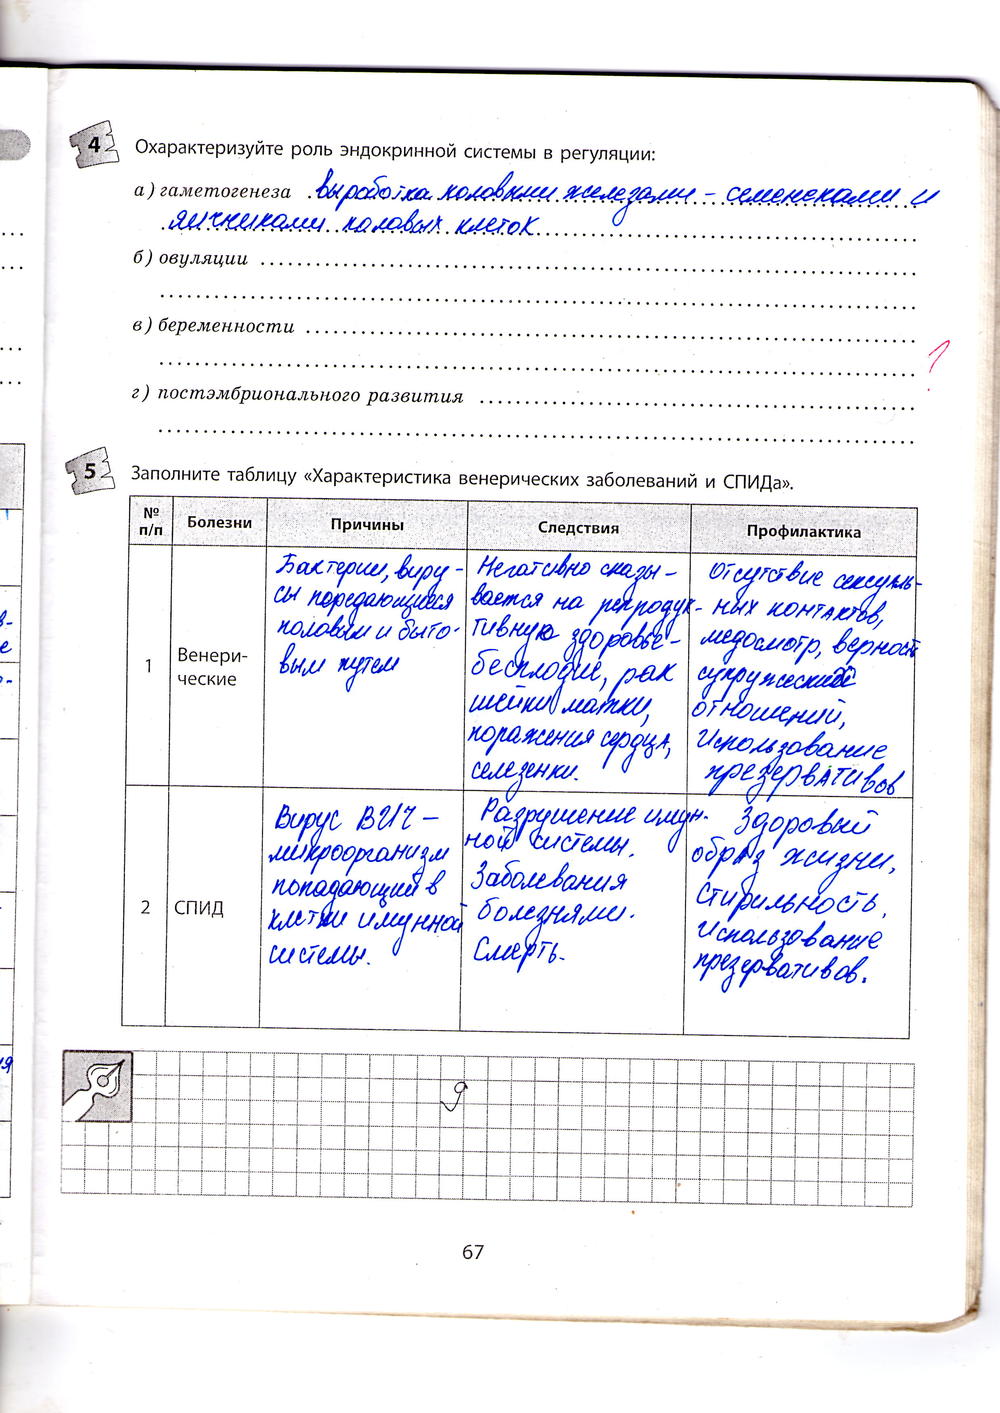 4 Охарактеризуйте роль эндокринной системы в регуляции:
а) гаметогенеза выработка половыми железами – семенеками и
яичниками половых клеток
б) овуляции
в) беременности
?
г) постэмбрионального развития
5 Заполните таблицу «Характеристика венерических заболеваний и СПИДа».
№ п/п
Болезни
Причины
Следствия
Профилактика
1
Венери-
ческие
Бактерии, виру-
сы передающиеся
половым и быто-
вым путем
Негативно сказы-
вается на репродук-
тивную здоровье-
бесплодие, рак
шейки матки,
поражения сердца,
селезенки.
Отсутствие сексуаль-
ных контактов,
медосмотр, верность
супружеской
отношений,
Использование
презервативов
2
СПИД
Вирус ВИЧ –
микроорганизм
попадающий в
клетки имунной
системы.
Разрушение имун-
ной системы.
Заболевания
болезнями.
Смерть.
Здоровый
образ жизни,
Стирильность,
Использование
презервативов.
67